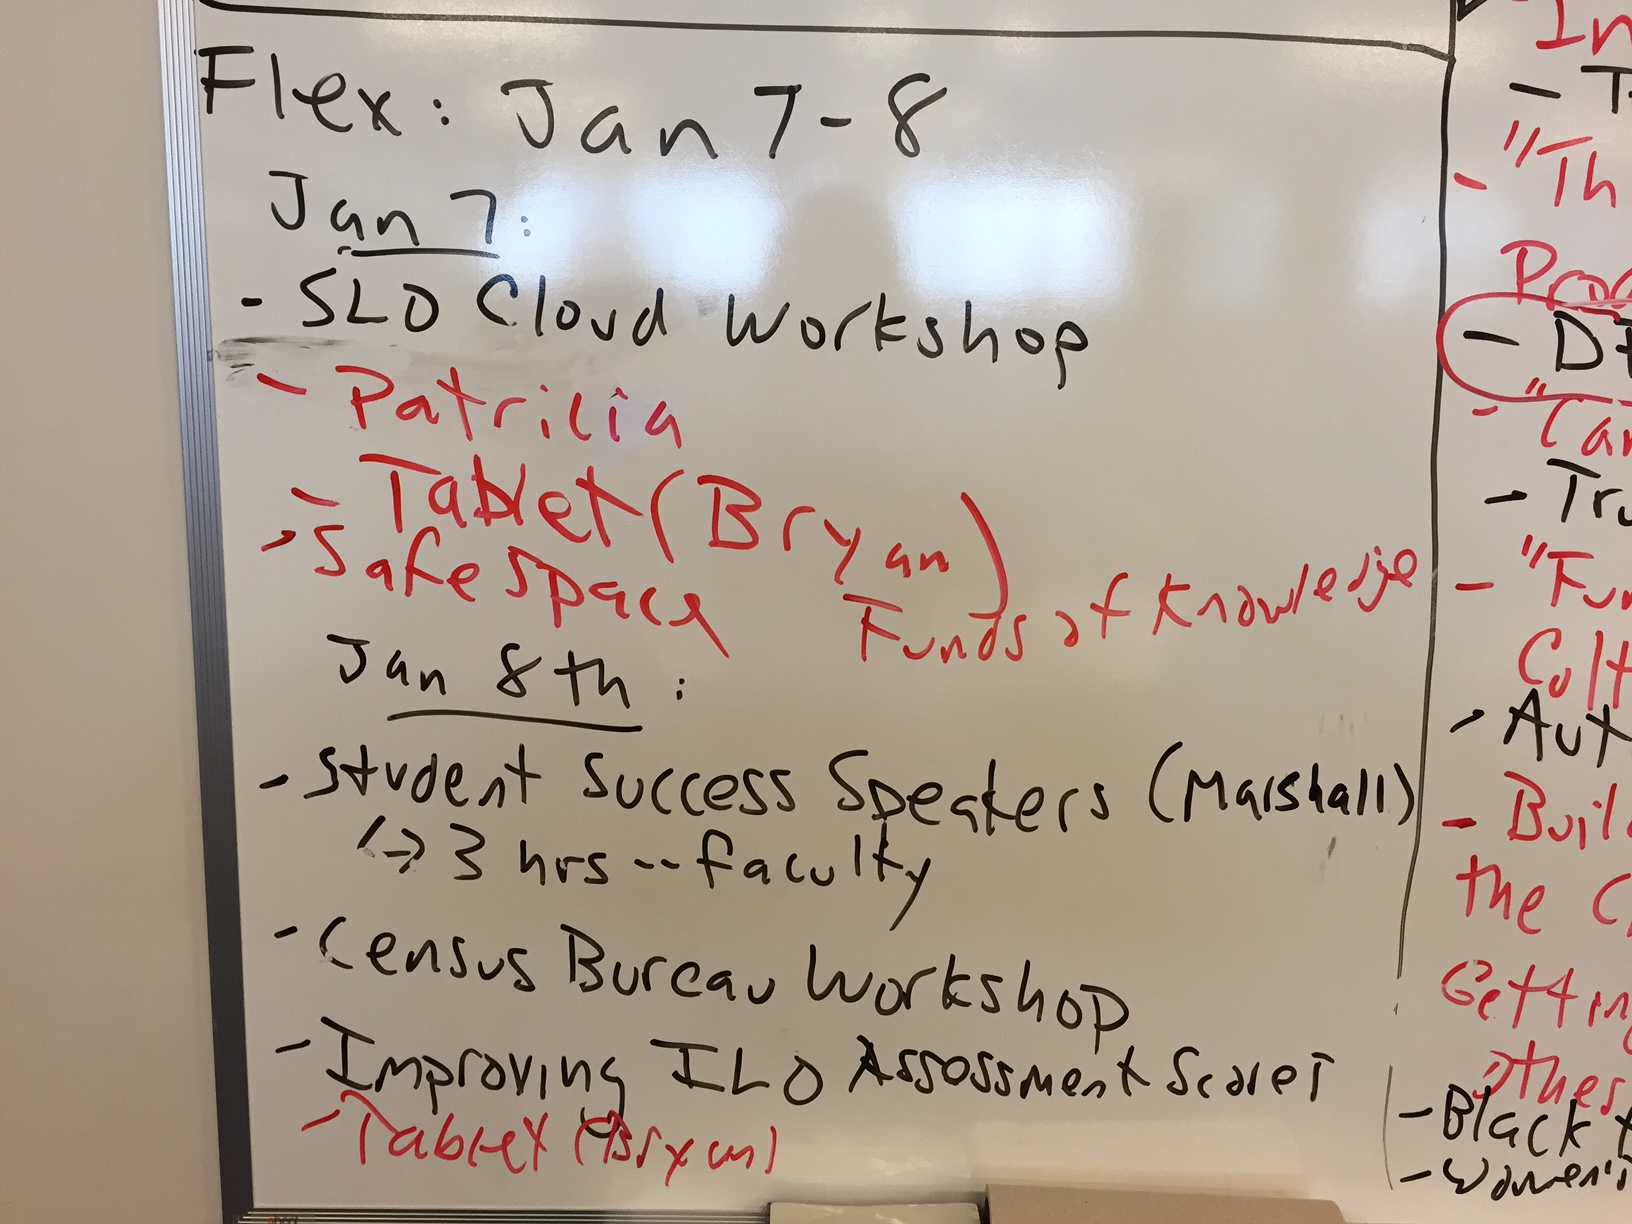 Flex: Jan 7-8
Jan 7:
- SLO Cloud Workshop
- Patricia
- Tablet (Bryan)
- Safe Space
Funds of Knowledge
Jan 8th:
- Student Success Speakers (Marshall)
↳ 3 hrs -- faculty
- Census Bureau Workshop
- Improving ILO Assessment Scores
- Tablet (Bryan)
In
- T
- "Th
- D
- "Car
- Tru
- "Fun
Cult
- Aut
- Buil
the C
Getting
others
- Black
- Women's